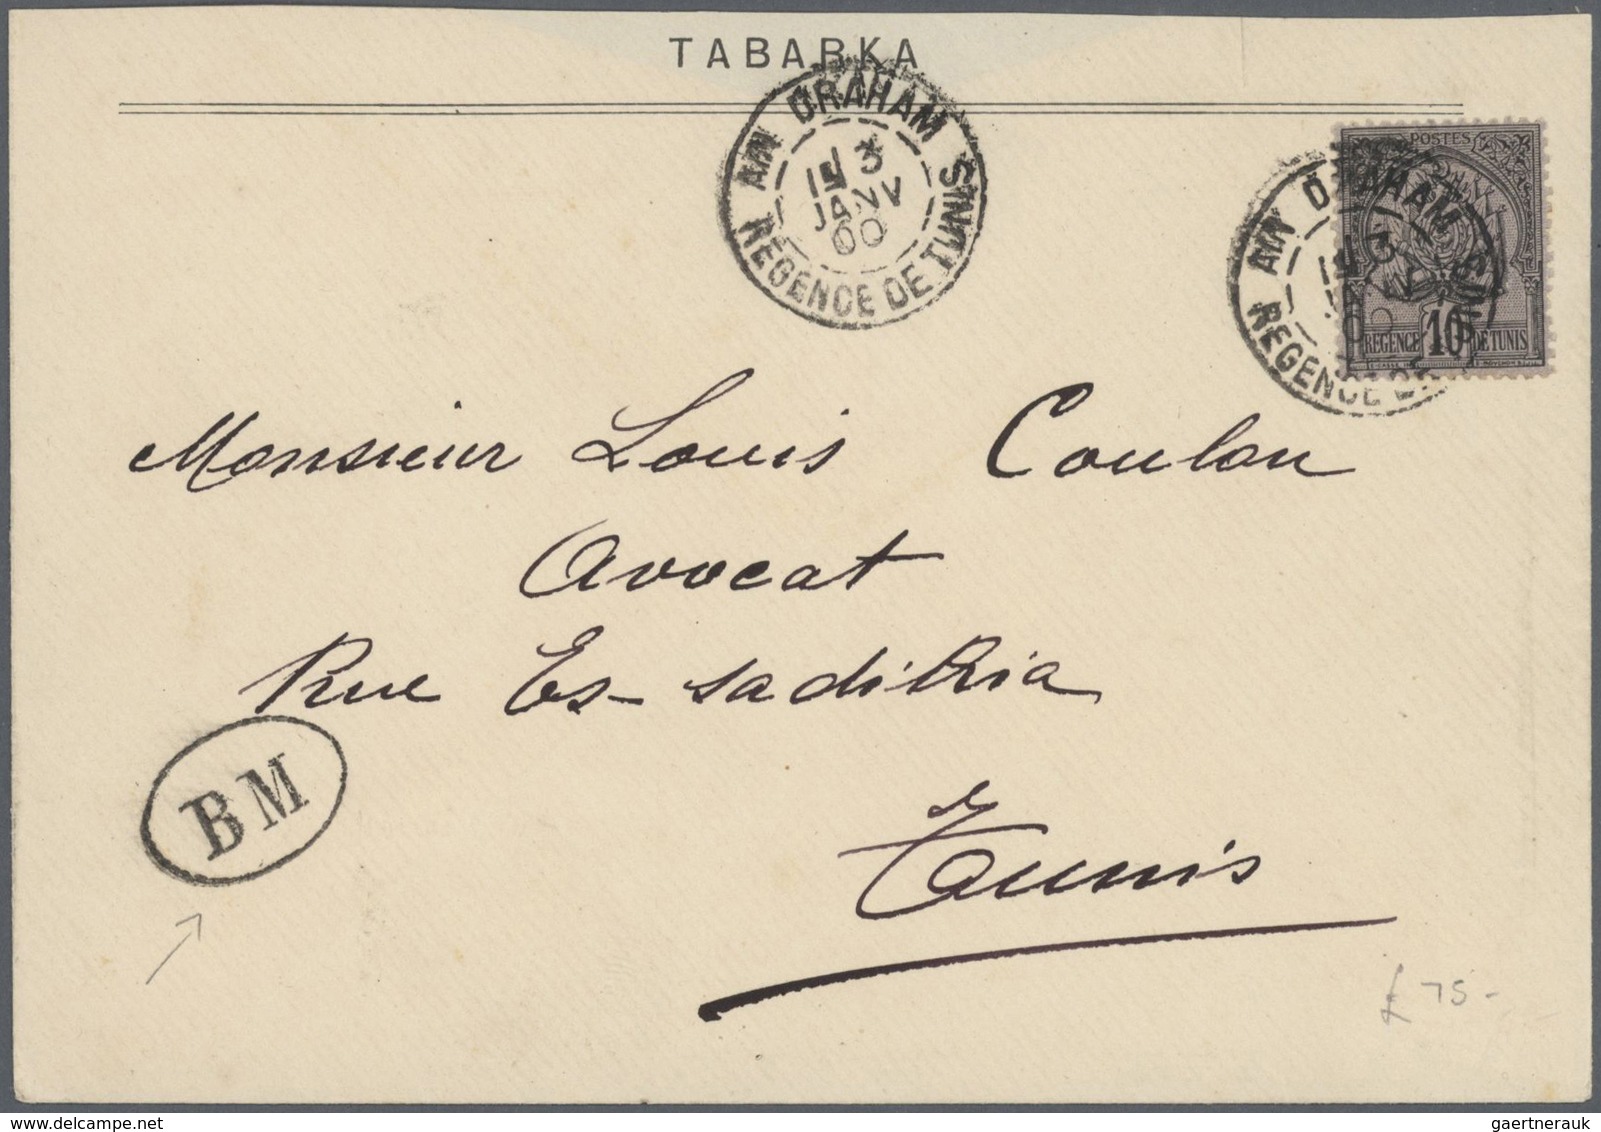 TABARKA
AIN DRAHAM
13
JANV
00
REGENCE DE TUNIS
AIN DRAHAM
13
REGENCE DE
POSTES
REGENCE 10 DE TUNIS
Monsieur Louis Coulon
Avocat
Rue Es-sadikia
Tunis
BM
£ 75-
gaertnerauk @ delcampe.net